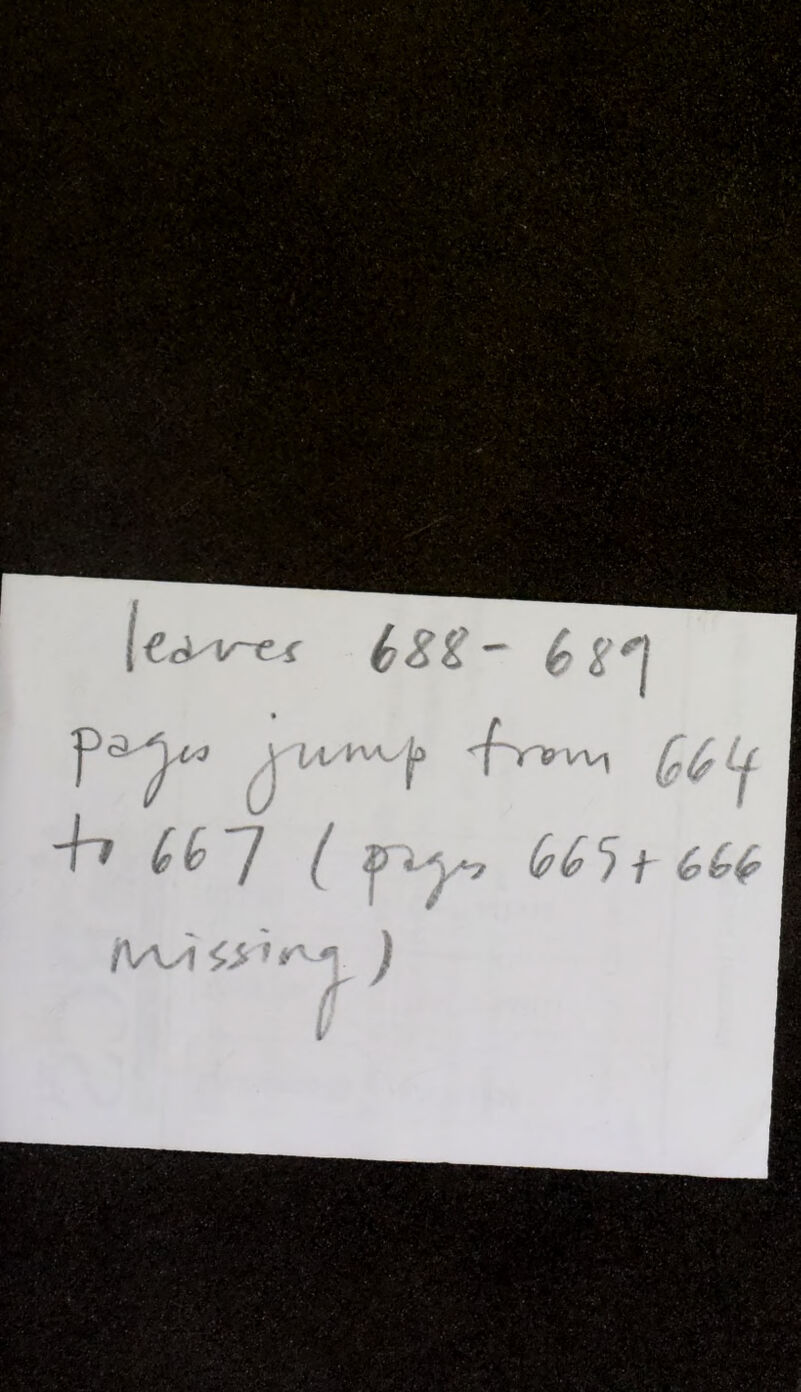 leaves 688 - 689
pages jump from 664
to 667 ( pages 665 + 666
missing )